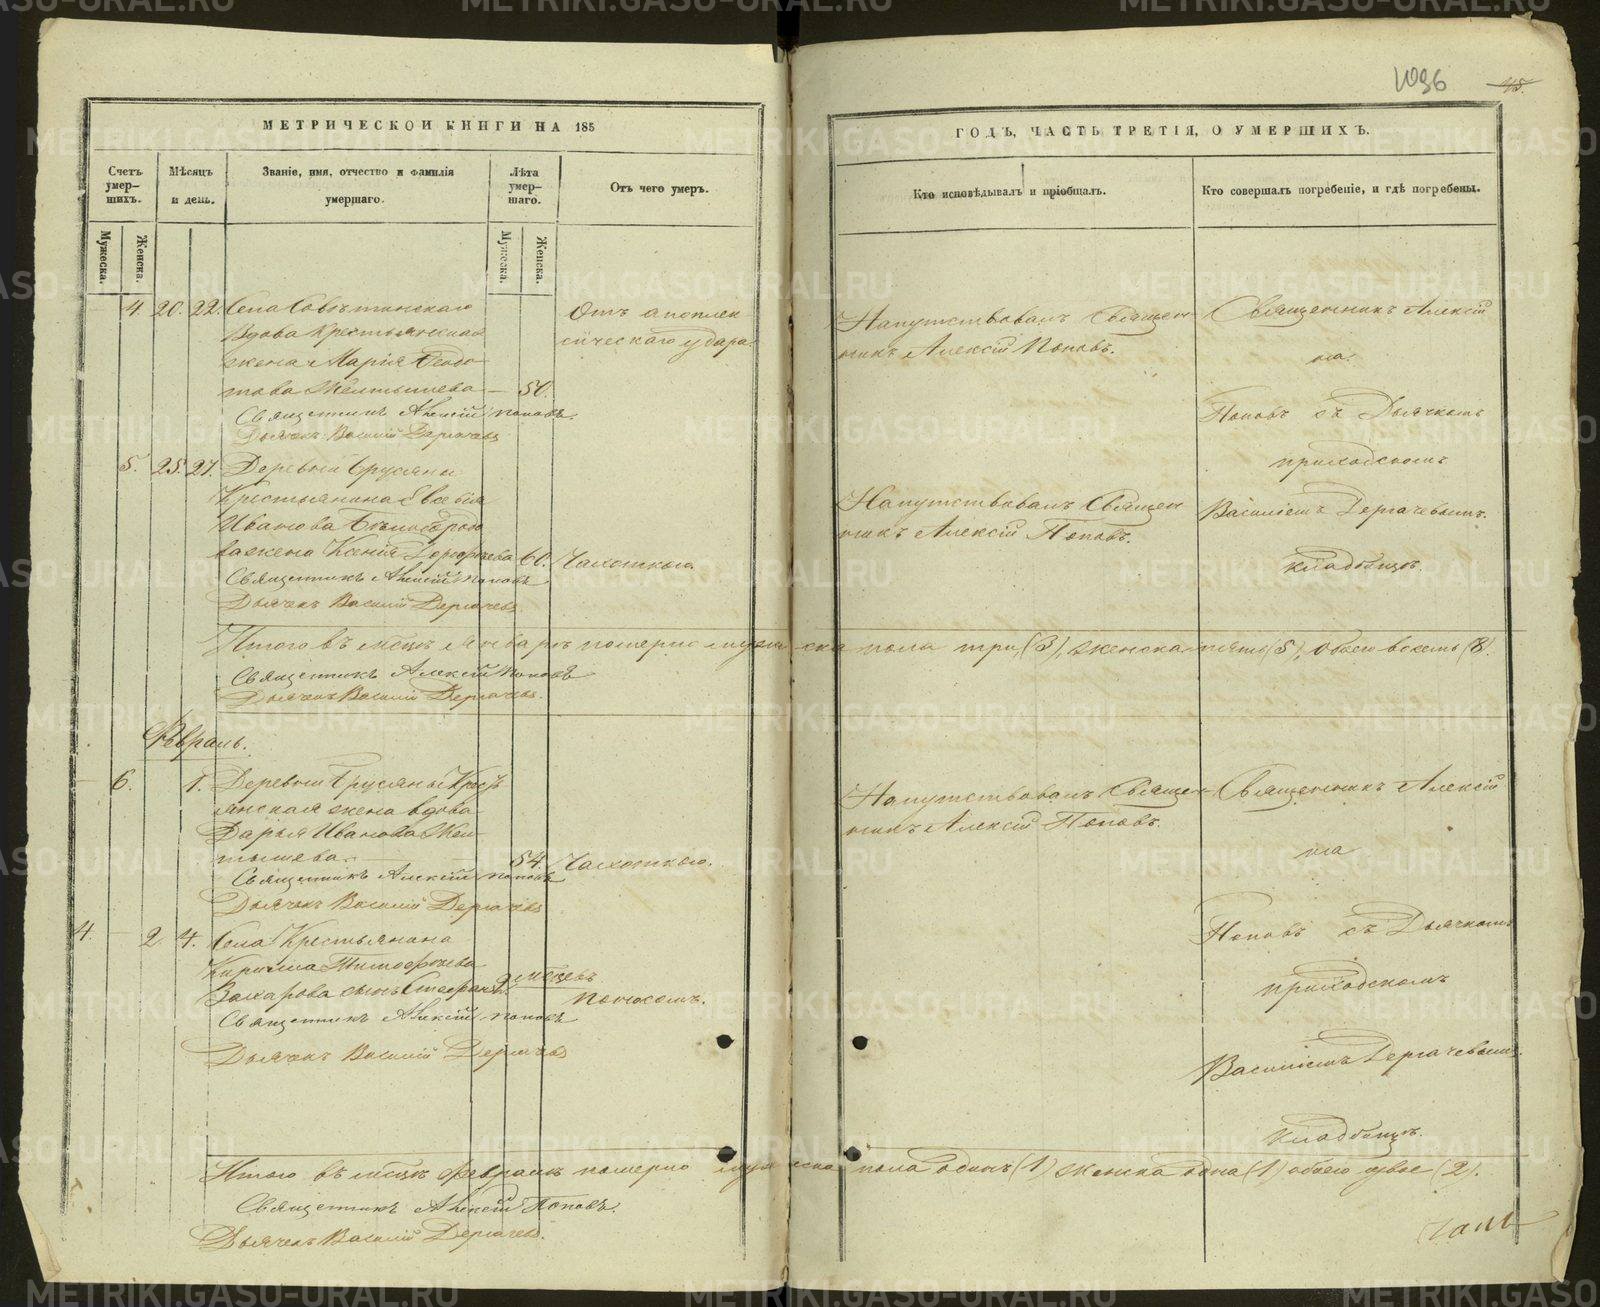 1096
45.
МЕТРИЧЕСКОЙ КНИГИ НА 185
ГОДЪ, ЧАСТЬ ТРЕТІЯ, О УМЕРШИХЪ.
Счетъ умер-шихъ.
Мѣсяцъ и день.
Званіе, имя, отчество и фамилія умершаго.
Лѣта умер-шаго.
Отъ чего умеръ.
Кто исповѣдывалъ и пріобщалъ.
Кто совершалъ погребеніе, и гдѣ погребены.
Мужеска.
Женска.
Мужеска.
Женска.
4. 20. 22. Села
Вдова Крестьянская
жена Марія Ѳедо
това Желтышева — 50.
Священникъ Алексій Поповъ.
Дьячекъ Василій Дергачевъ
Отъ апоплек
сическаго удара.
Напутствовалъ Священ
никъ Алексій Поповъ.
Священникъ Алексій
на
Поповъ съ Дьячкомъ
приходскомъ
Василіемъ Дергачевымъ.
кладбищѣ.
5. 25. 27. Деревни Брусяны
Крестьянина Евсевія
Иванова Бѣлобородо
ва жена Ксенія Дорофѣева 60. Чахоткою.
Священникъ Алексій Поповъ
Дьячекъ Василій Дергачевъ
Напутствовалъ Священ
никъ Алексій Поповъ.
Итого въ мѣсцѣ Январѣ померло мужеска пола три (3), женска пять (5), обоего восемь (8).
Священникъ Алексій Поповъ
Дьячекъ Василій Дергачевъ.
Февраль.
6. 1. Деревни Брусяны Крест
янская жена вдова
Дарья Иванова Жел
тышева. — 54. Чахоткою.
Священникъ Алексій Поповъ
Дьячекъ Василій Дергачевъ
Напутствовалъ Священ
никъ Алексій Поповъ.
Священникъ Алексій
на
Поповъ съ Дьячкомъ
приходскомъ
Василіемъ Дергачевымъ.
кладбищѣ.
4. — 2. 4. Села Крестьянина
Кирилла Тимофѣева
Захарова сынъ Стефанъ 9 мѣсцевъ
поносомъ.
Священникъ Алексій Поповъ
Дьячекъ Василій Дергачевъ
Итого въ мѣсцѣ Февралѣ померло мужеска пола одинъ (1) женска одна (1) обоего двое (2).
Священникъ Алексій Поповъ.
Дьячекъ Василій Дергачевъ.
METRIKI.GASO-URAL.RU